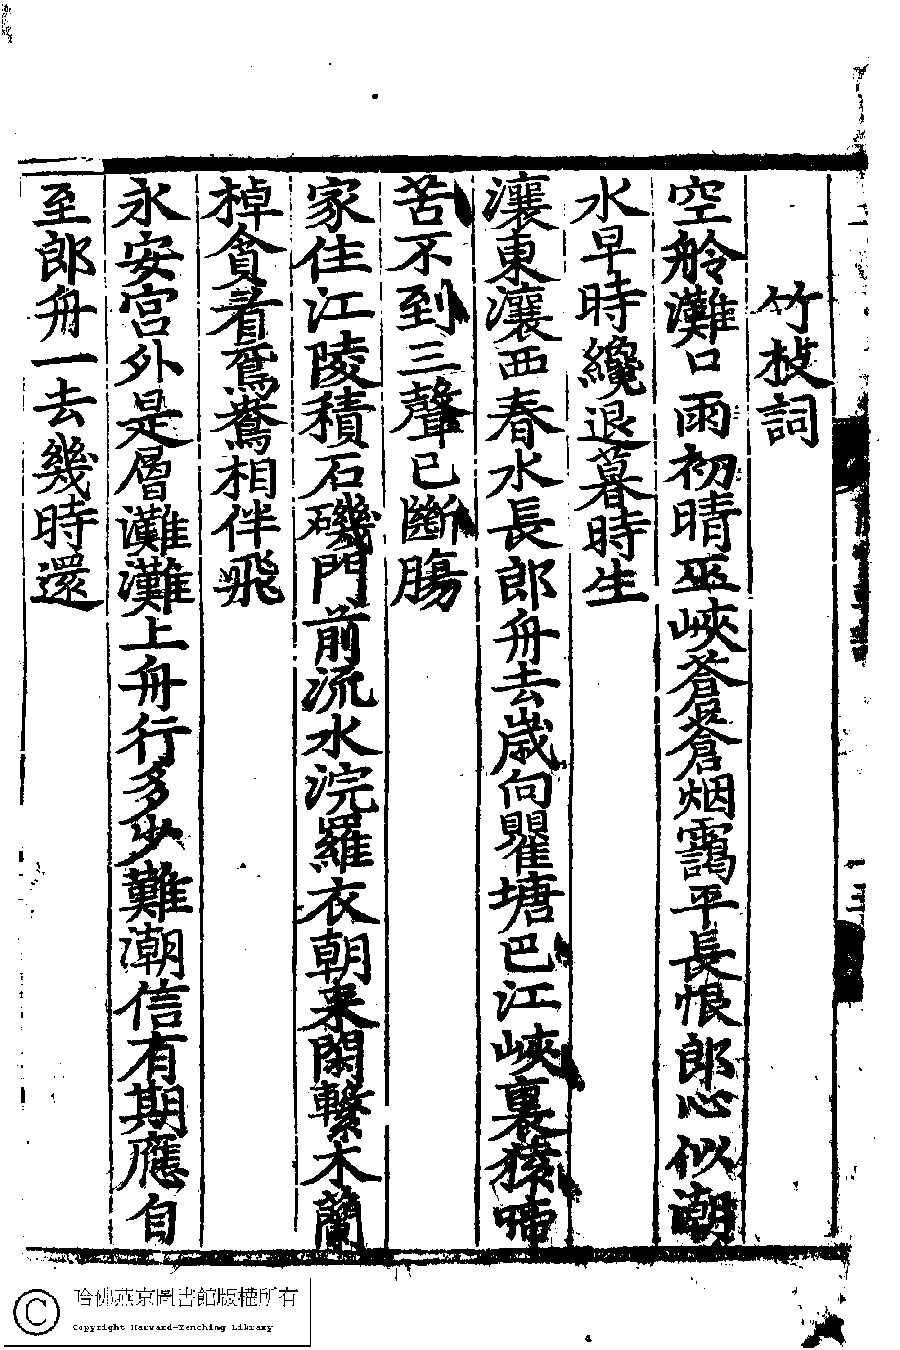 竹枝詞
空舲灘口雨初晴巫峽蒼蒼烟靄平長恨郎心似潮
水早時纔退暮時生
瀼東瀼西春水長郎舟去歲向瞿塘巴江峽裏猿啼
苦不到三聲已斷腸
家住江陵積石磯門前流水浣羅衣朝来閑繫木蘭
棹貪看鴛鴦相伴飛
永安宮外是層灘灘上舟行多少難潮信有期應自
至郎舟一去幾時還
一三
哈佛燕京圖書館版權所有
Copyright Harvard-Yenching Library